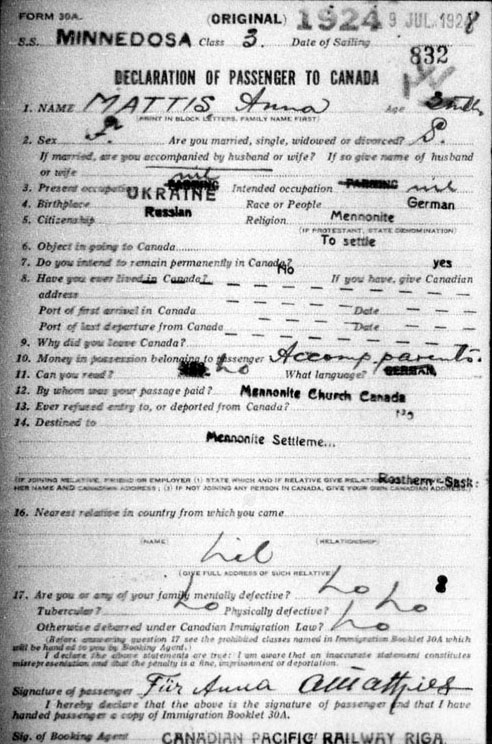 FORM 30A. (ORIGINAL) 1924 9 JUL 1928
S.S. MINNEDOSA Class 3. Date of Sailing
832
DECLARATION OF PASSENGER TO CANADA
1. NAME MATTIS Anna Age
(PRINT IN BLOCK LETTERS, FAMILY NAME FIRST)
2. Sex F. Are you married, single, widowed or divorced? S.
If married, are you accompanied by husband or wife? If so give name of husband
or wife nil
3. Present occupation FARMING Intended occupation FARMING nil
4. Birthplace UKRAINE Race or People German
5. Citizenship Russian Religion Mennonite
(IF PROTESTANT, STATE DENOMINATION)
6. Object in going to Canada To settle
7. Do you intend to remain permanently in Canada? yes
8. Have you ever lived in Canada? No If you have, give Canadian
address
Port of first arrival in Canada Date
Port of last departure from Canada Date
9. Why did you leave Canada?
10. Money in possession belonging to passenger Accomp. parents.
11. Can you read? No What language? GERMAN
12. By whom was your passage paid? Mennonite Church Canada
13. Ever refused entry to, or deported from Canada?
14. Destined to
Mennonite Settleme...
Rosthern-Sask:
(IF JOINING RELATIVE, FRIEND OR EMPLOYER (1) STATE WHICH AND IF RELATIVE GIVE RELATIONSHIP
HER NAME AND CANADIAN ADDRESS; (3) IF NOT JOINING ANY PERSON IN CANADA, GIVE YOUR OWN CANADIAN ADDRESS.)
16. Nearest relative in country from which you came
(NAME) (RELATIONSHIP)
Nil
(GIVE FULL ADDRESS OF SUCH RELATIVE)
17. Are you or any of your family mentally defective? No
Tubercular? No Physically defective? No
Otherwise debarred under Canadian Immigration Law? No
(Before answering question 17 see the prohibited classes named in Immigration Booklet 30A which
will be handed to you by Booking Agent.)
I declare the above statements are true: I am aware that an inaccurate statement constitutes
misrepresentation and that the penalty is a fine, imprisonment or deportation.
Signature of passenger Für Anna AMatthies
I hereby declare that the above is the signature of passenger and that I have
handed passenger a copy of Immigration Booklet 30A.
Sig. of Booking Agent CANADIAN PACIFIC RAILWAY RIGA